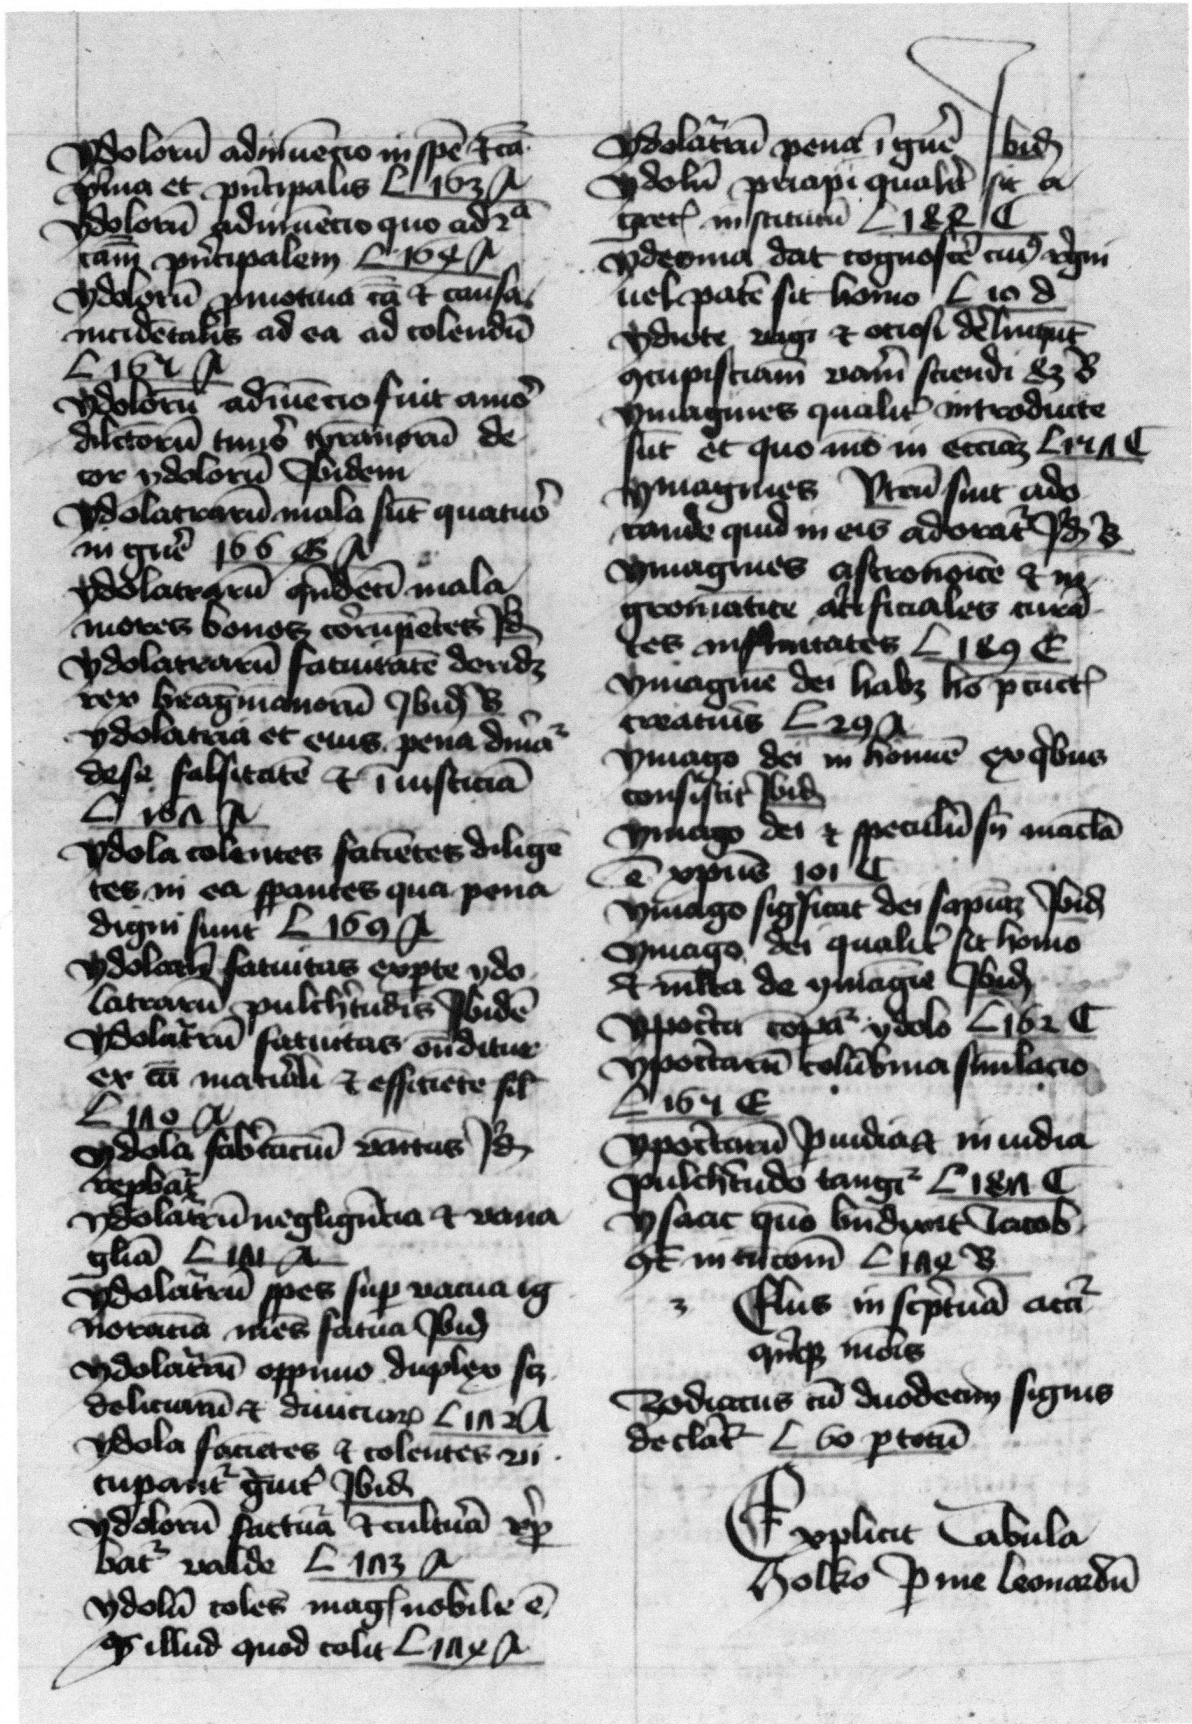 ydolorū adinuēcio in spē et cā
p̄ma et pn̄cipalis L 163 A
ydolorū adinuēcio quo ad 2ā
cām pn̄cipalem L 164 A
ydolorū pmotiua cā et causa
incidētalis ad ea ad colendū
L 165 A
ydolorū adinuēcio fuit amor
dilectorū timor tyrānorū de
cor ydolorū Ibidem
ydolatrarū mala sūt quatuor
in gn̄e 166 A
ydolatrarū mala
mores bonos corūpētes Id
ydolatrarū fatuitatē deridz
rex bragmanorū Ibid B
ydolatria et eius pena
falsitatē et iniusticiā
L 168 A
ydola colentes faciētes diligē
tes in ea spantes qua pena
digni sunt L 169 A
fatuitas ex pte ydo
latrarū pulchtudīs Ibidē
ydolatrū fatuitas onditur
ex cā mat'iali et efficiēte sil
L 170 A
ydola Id
repbat
ydolatrū negligēcia et vana
gliā L 171 A
ydolatrū spes sup vacua ig
norācia mēs fatua Ibid
ydolatrū oppinio duplex sz
deliciarū et diuiciar L 172 A
ydola faciētes et colentes vi
tupant' Ibid
ydolorū factura et cultura rep
bat' valde L 173 A
ydolū colēs mag nobilior ē
q illud quod colit L 174 A
ydolatrū pena ī gn̄e Ibid
ydolū priapi qualit' sit a
grec institutū L 182 C
ydeoma dat cognoscē cui' regni
uel patē sit homo L 10 d
ydiote vagi et ociosi
scupisciam vanā sciendi 83 B
ymagines qualit' introducte
sūt et quo mō in ecciaz L C
ymagines Vtrū sint ado
rande quid in eis adorat' Id B
ymagines astronoīce et ni
gromātice artificiales curā
tes infirmitates L 189 E
ymaginē dei habz hō p cunct
creaturis L 29 A
ymago dei in homīe ex qbus
consistit Ibid
ymago dei et speculū sn macla
ē xpus 101 C
ymago significat dei sapiam Ibid
ymago dei qualit' sit homo
et mlta de ymagīe Ibid
ypocta copat' ydolo L 162 C
ypoctarū colūbina simlacio
L 167 E
ypoctarū inuidia
pulchtudo tangit' L 187 C
ysaac quō bn̄dixit Iacob
L 174 B
Elus in sc̄ptura acci
moīs
Zodiacus cū duodecim signis
declarat' L 60 p totū
Explicit Tabula
Holko p me leonardū